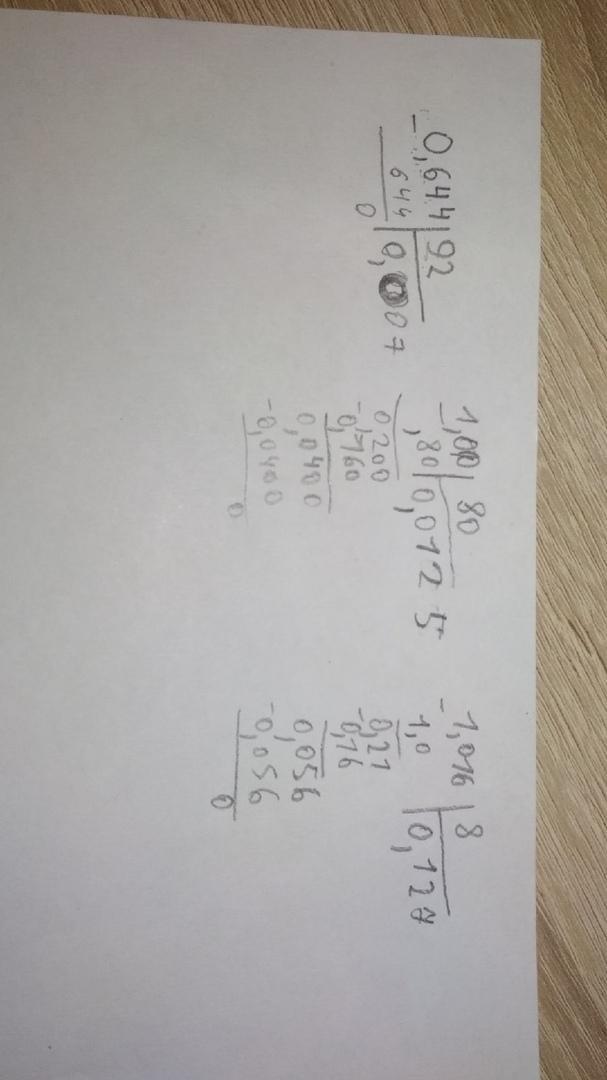 -0,644 | 92
644 | 0,007
0
-1,00 | 80
,80 | 0,0125
0,200
-0,160
0,0400
-0,0400
0
-1,016 | 8
1,0 | 0,127
0,21
-0,16
0,056
-0,056
0